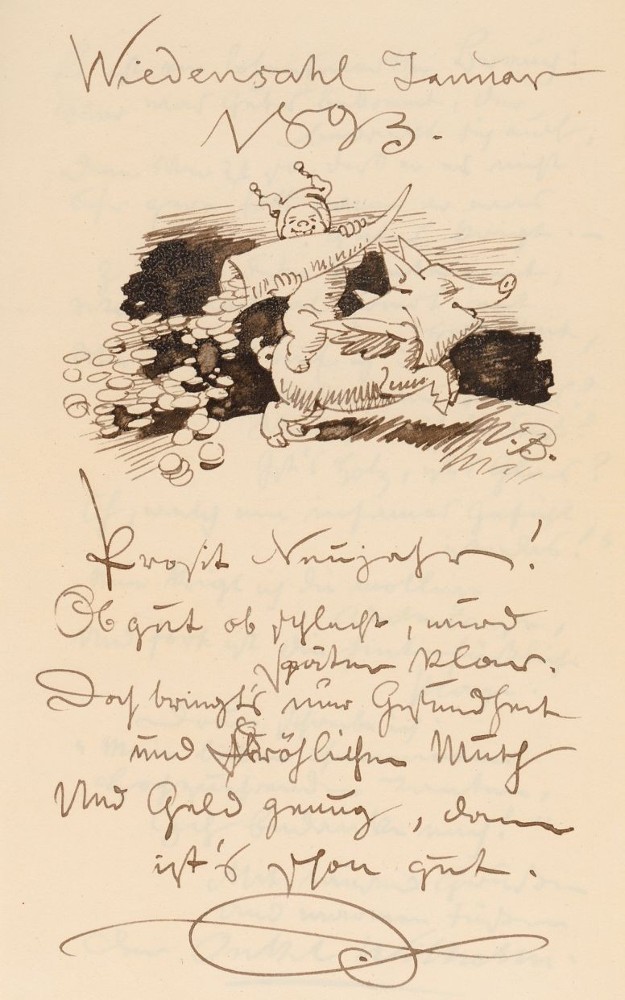 Wiedensahl Januar
1893.
W. B.
Prosit Neujahr!
Ob gut ob schlecht, wird
später klar.
Doch bringt's nur Gesundheit
und fröhlichen Muth
Und Geld genug, dann
ist's schon gut.